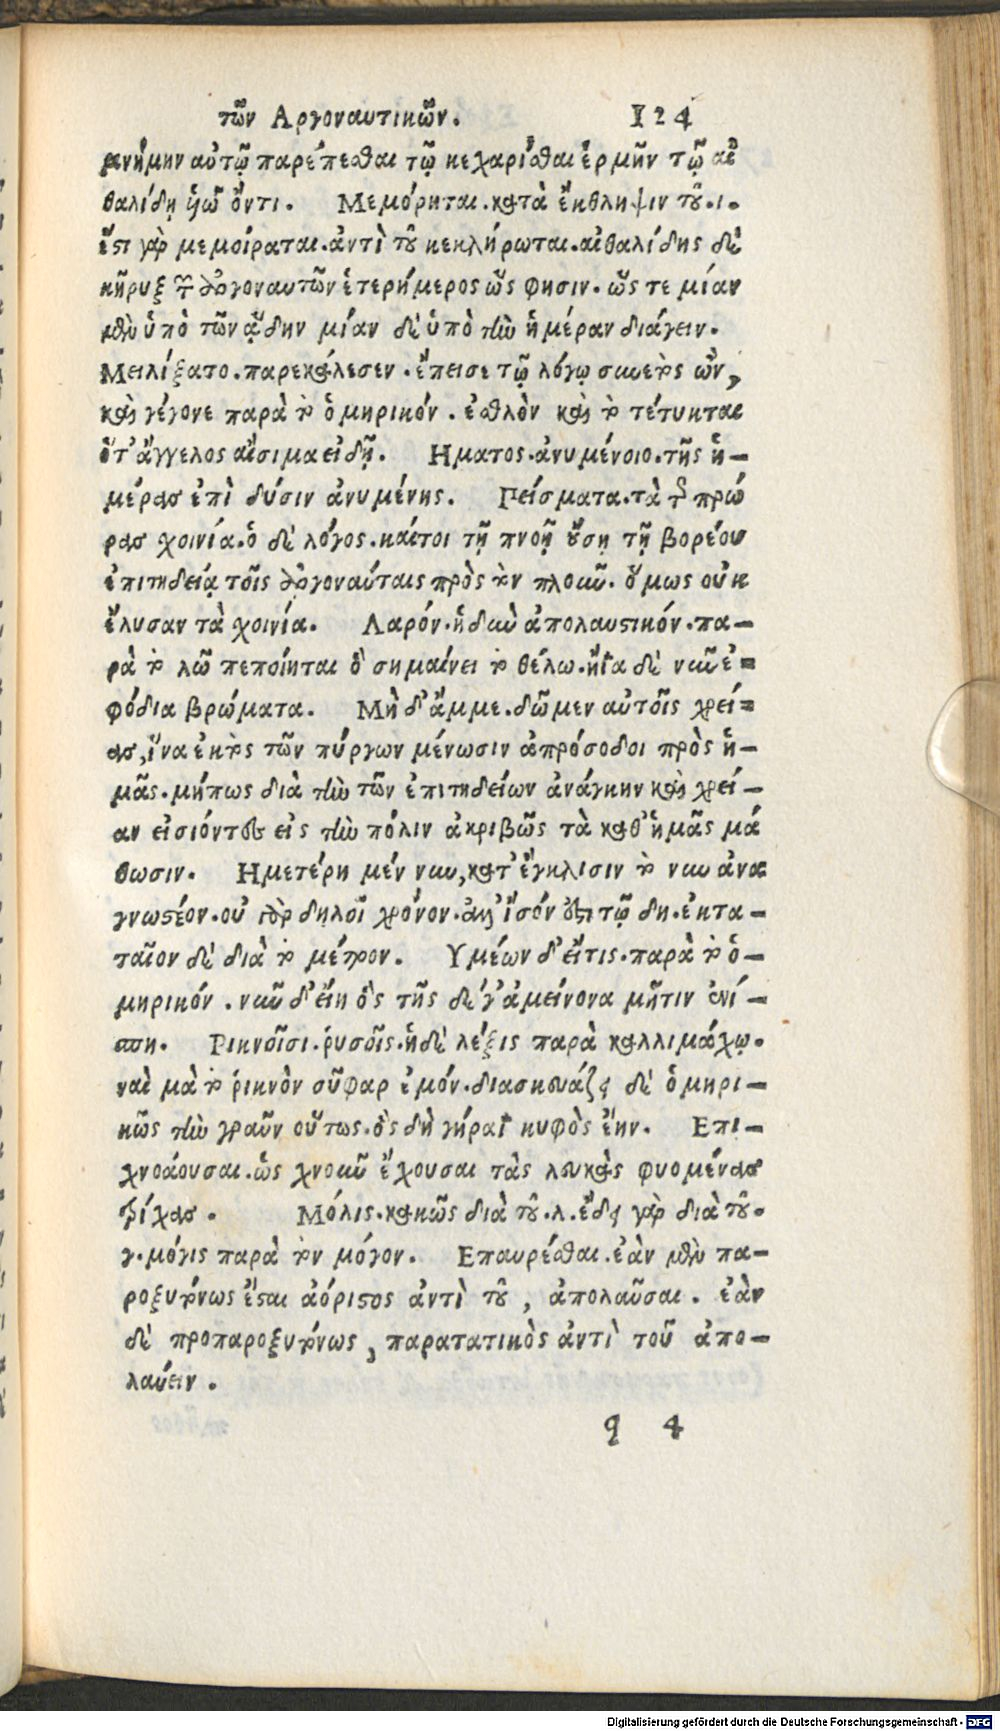 τῶν Αργοναυτικῶν. 124
μνήμην αὐτῷ παρέπεσθαι τῷ κεχαρίσθαι ἑρμῆν τῷ αἰ
θαλίδῃ ὑῷ ὄντι. Μεμόρηται. κατὰ ἔκθληψιν τοῦ. ι.
ἔστι γὰρ μεμοίραται. ἀντὶ τοῦ κεκλήρωται. αἰθαλίδης δὲ
κῆρυξ τῶν ἀργοναυτῶν ἑτερήμερος ὥς φησιν. ὥς τε μίαν
μὲν ὑπὸ τῶν ᾅδην μίαν δὲ ὑπὸ τὴν ἡμέραν διάγειν.
Μειλίξατο. παρεκάλεσεν. ἔπεισε τῷ λόγῳ συνετὸς ὤν,
καὶ γέγονε παρὰ τὸ ὁμηρικόν. ἐσθλὸν καὶ τὸ τέτυκται
ὅτ' ἄγγελος αἴσιμα εἰδῇ. Ηματος. ἀνυμένοιο. τῆς ἡ-
μέρας ἐπὶ δύσιν ἀνυμένης. Πείσματα. τὰ τῆς πρώ
ρας χοινία. ὁ δὲ λόγος. καίτοι τῇ πνοῇ οὔσῃ τῇ βορέου
ἐπιτηδείᾳ τοῖς ἀργοναύταις πρὸς τὸν πλοῦν. ὅμως οὐκ
ἔλυσαν τὰ χοινία. Λαρόν. ἡδὺ ἀπολαυστικόν. πα-
ρὰ τὸ λῶ πεποίηται ὃ σημαίνει τὸ θέλω. ἤϊα δὲ νῦν ἐ-
φόδια βρώματα. Μὴ δ' ἄμμε. δῶμεν αὐτοῖς χρεί-
ας, ἵνα ἐκτὸς τῶν πύργων μένωσιν ἀπρόσοδοι πρὸς ἡ-
μᾶς. μήπως διὰ τὴν τῶν ἐπιτηδείων ἀνάγκην καὶ χρεί-
αν εἰσιόντες εἰς τὴν πόλιν ἀκριβῶς τὰ καθ' ἡμᾶς μά
θωσιν. Ημετέρη μέν νυν, κατ' ἔγκλισιν τὸ νυν ἀνα
γνωστέον. οὐ γὰρ δηλοῖ χρόνον. ἀλλ' ἴσόν ἐστι τῷ δη. ἐκτα-
ταῖον δὲ διὰ τὸ μέτρον. Υμέων δ' εἴτις. παρὰ τὸ ὁ-
μηρικόν. νῦν δ' εἴη ὃς τῆς δέ γ' ἀμείνονα μῆτιν ἐνί-
σπη. Ρικνοῖσι. ῥυσοῖς. ἡ δὲ λέξις παρὰ καλλιμάχῳ.
ναὶ μὰ τὸ ῥικνὸν σῦφαρ ἐμόν. διασκευάζει δὲ ὁμηρι-
κῶς τὴν γραῦν οὕτως. ὃς δὴ γήραϊ κυφὸς ἔην. Επι-
χνοάουσαι. ὡς χνοῦν ἔχουσαι τὰς λευκὰς φυομένας
τρίχας. Μόλις. κακῶς διὰ τοῦ. λ. ἔδει γὰρ διὰ τοῦ.
γ. μόγις παρὰ τὸν μόγον. Επαυρέσθαι. ἐὰν μὲν πα-
ροξυτόνως ἔσται ἀόριστος ἀντὶ τοῦ, ἀπολαῦσαι. ἐὰν
δὲ προπαροξυτόνως, παρατατικὸς ἀντὶ τοῦ ἀπο-
λαύειν.
q 4
Digitalisierung gefördert durch die Deutsche Forschungsgemeinschaft - DFG